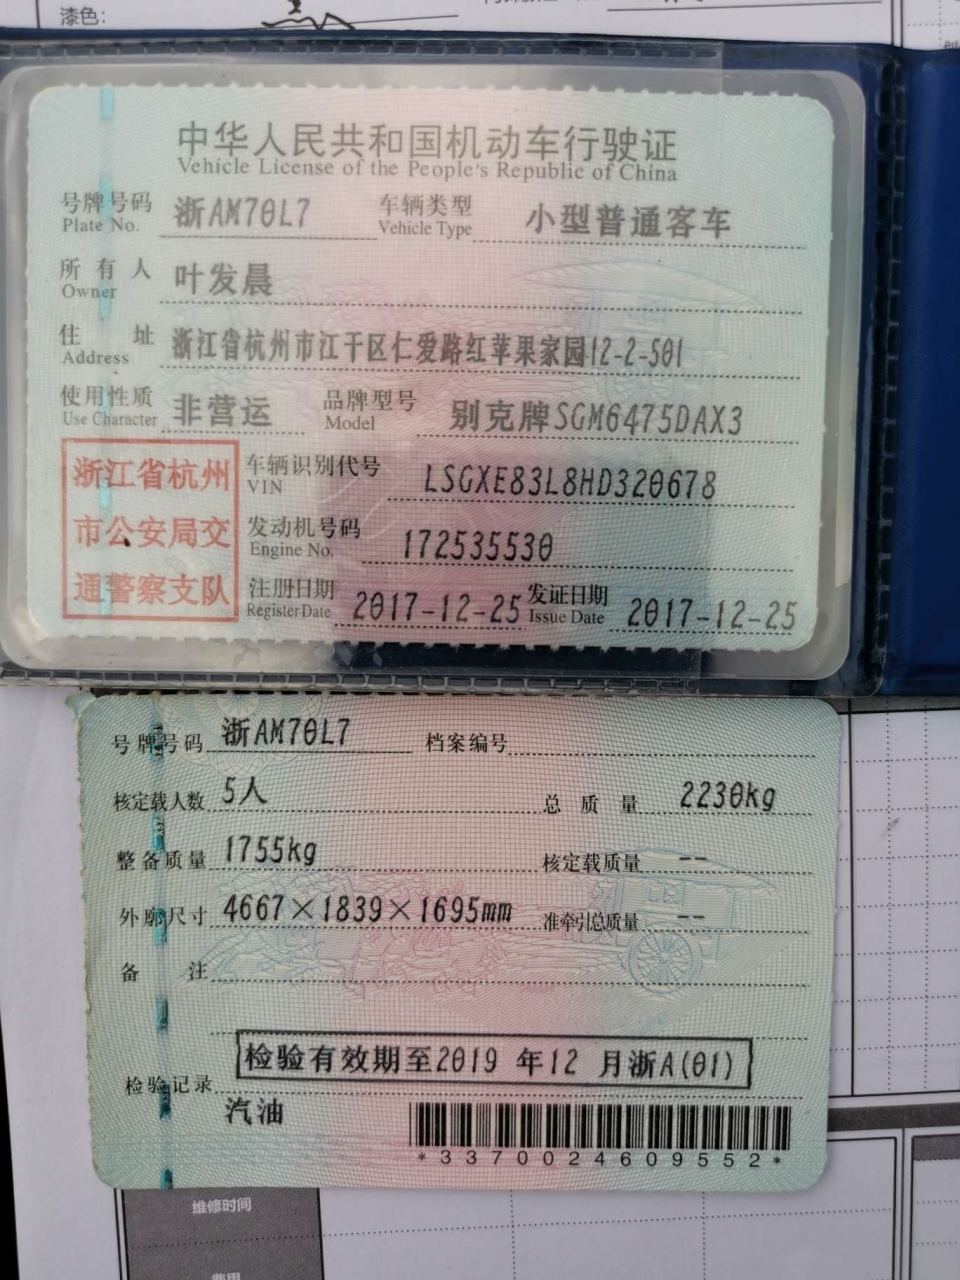 漆色:
中华人民共和国机动车行驶证
Vehicle License of the People's Republic of China
号牌号码 浙AM70L7 车辆类型 小型普通客车
Plate No. Vehicle Type
所有人 叶发晨
Owner
住址 浙江省杭州市江干区仁爱路红苹果家园12-2-501
Address
使用性质 非营运 品牌型号 别克牌SGM6475DAX3
Use Character Model
浙江省杭州
市公安局交
通警察支队
车辆识别代号 LSGXE83L8HD320678
VIN
发动机号码 172535530
Engine No.
注册日期 2017-12-25 发证日期 2017-12-25
Register Date Issue Date
号牌号码 浙AM70L7 档案编号
核定载人数 5人 总质量 2230kg
整备质量 1755kg 核定载质量 --
外廓尺寸 4667×1839×1695mm 准牵引总质量 --
备注
检验有效期至2019 年12 月浙A(01)
检验记录
汽油
*3370024609552*
维修时间
费用